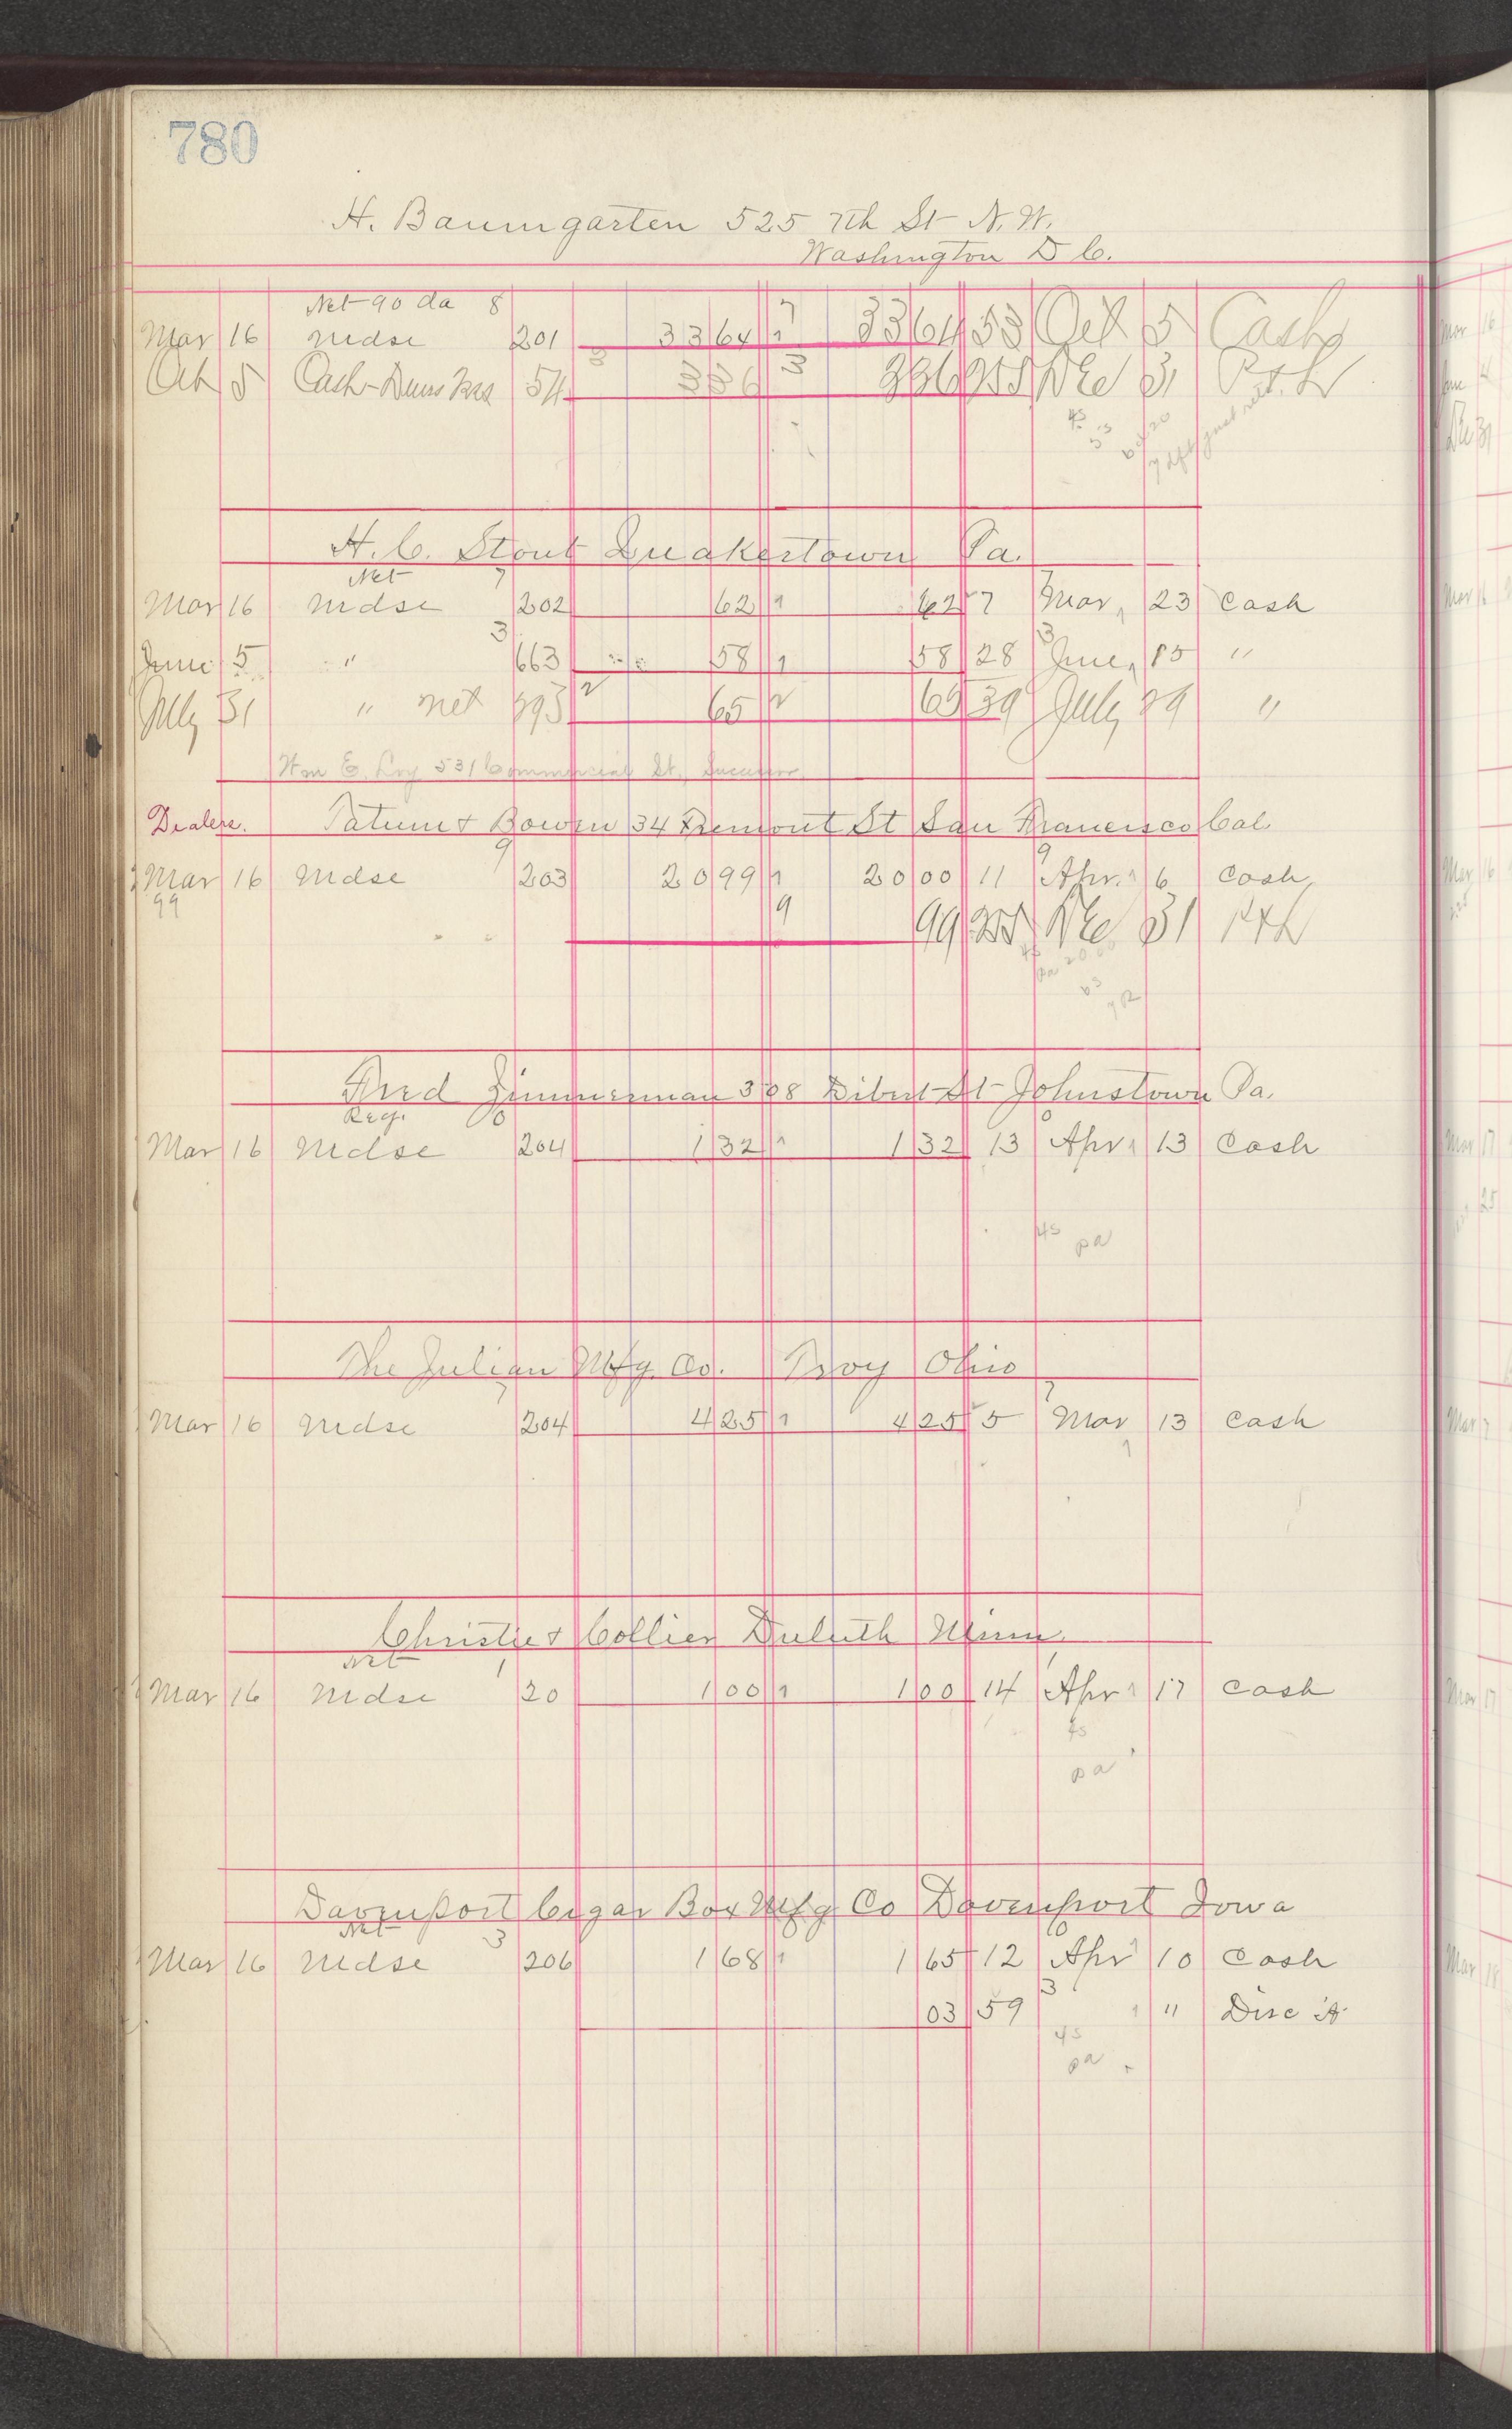 780
H. Baumgarten 525 7th St N.W.
Washington D C.
Net 90 da 8 7
Mar 16 Mdse 201 33 64 1 33 64 53 Oct 5 Cash
Oct 5 Cash 54 3 36 3 Dec 31 P & L
4s
H. C. Stout Quakertown Pa.
Net 7
Mar 16 Mdse 202 62 1 62 7 Mar 23 Cash
3 3
June 5 " 663 58 1 58 28 June 15 "
July 31 " net 2 65 65 39 July 29 "
Wm E. Loy 531 Commercial St.
Dealers. Tatum & Bowen 34 Fremont St San Francisco Cal.
9 9
Mar 16 Mdse 203 20 99 1 20 00 11 Apr. 6 Cash
99 9
99 Dec 31 P & L
Fred Zimmerman 308 Dibert St Johnstown Pa.
Reg.
Mar 16 Mdse 204 1 32 1 1 32 13 Apr 13 Cash
4s pa
The Julian Mfg. Co. Troy Ohio
7 7
Mar 16 Mdse 204 4 25 1 4 25 5 Mar 13 Cash
Christie & Collier Duluth Minn.
Net 1
Mar 16 Mdse 20 1 00 1 1 00 14 Apr 17 Cash
4s
pa
Davenport Cigar Box Mfg Co Davenport Iowa
Net 3
Mar 16 Mdse 206 1 68 1 1 65 12 Apr 10 Cash
3
03 59 " Disc
4s
pa